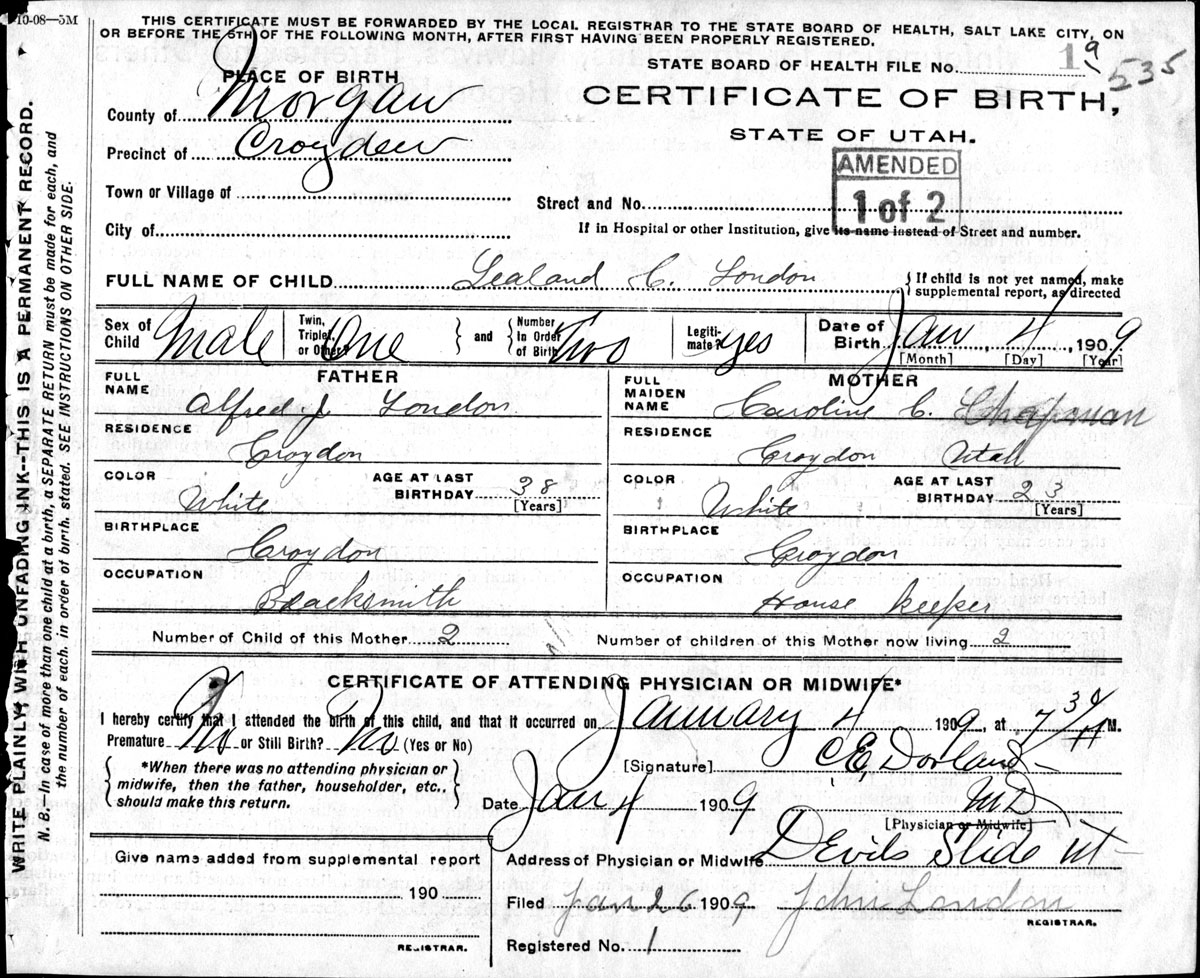 10-08—5M
THIS CERTIFICATE MUST BE FORWARDED BY THE LOCAL REGISTRAR TO THE STATE BOARD OF HEALTH, SALT LAKE CITY, ON
OR BEFORE THE 5TH OF THE FOLLOWING MONTH, AFTER FIRST HAVING BEEN PROPERLY REGISTERED.
WRITE PLAINLY, WITH UNFADING INK--THIS IS A PERMANENT RECORD.
N. B.—In case of more than one child at a birth, a SEPARATE RETURN must be made for each, and
the number of each, in order of birth, stated. SEE INSTRUCTIONS ON OTHER SIDE.
PLACE OF BIRTH
County of Morgan
Precinct of Croyden
Town or Village of
City of
STATE BOARD OF HEALTH FILE No. 19 535
CERTIFICATE OF BIRTH,
STATE OF UTAH.
AMENDED
1 of 2
Street and No.
If in Hospital or other Institution, give its name instead of Street and number.
FULL NAME OF CHILD Lealand C. London
If child is not yet named, make
supplemental report, as directed
Sex of Child Male
Twin, Triplet, or Other? One
and
Number In Order of Birth Two
Legitimate? yes
Date of Birth Jan 4, 1909
[Month] [Day] [Year]
FATHER
FULL NAME Alfred J. London
RESIDENCE Croydon
COLOR White
AGE AT LAST BIRTHDAY 38 [Years]
BIRTHPLACE Croydon
OCCUPATION Blacksmith
MOTHER
FULL MAIDEN NAME Caroline C. Chapman
RESIDENCE Croydon Utah
COLOR White
AGE AT LAST BIRTHDAY 23 [Years]
BIRTHPLACE Croydon
OCCUPATION House Keeper
Number of Child of this Mother 2
Number of children of this Mother now living 2
CERTIFICATE OF ATTENDING PHYSICIAN OR MIDWIFE*
I hereby certify that I attended the birth of this child, and that it occurred on January 4 1909, at 7 30 A M.
Premature No or Still Birth? No (Yes or No)
*When there was no attending physician or
midwife, then the father, householder, etc.,
should make this return.
[Signature] C. E. Dorland
M D
[Physician or Midwife]
Date Jan 4 1909
Give name added from supplemental report
190
REGISTRAR.
Address of Physician or Midwife Devils Slide Ut
Filed Jan 26 1909 John London
REGISTRAR.
Registered No. 1